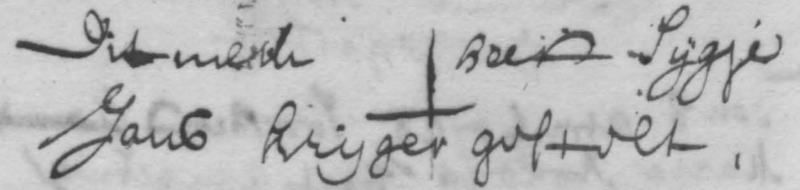 Dit merk heeft Sijgje
Jans krijger gestelt.